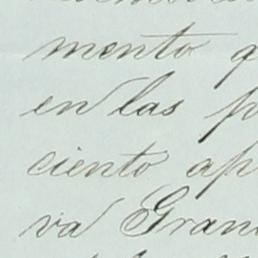 mento
en las
ciento
va Gran